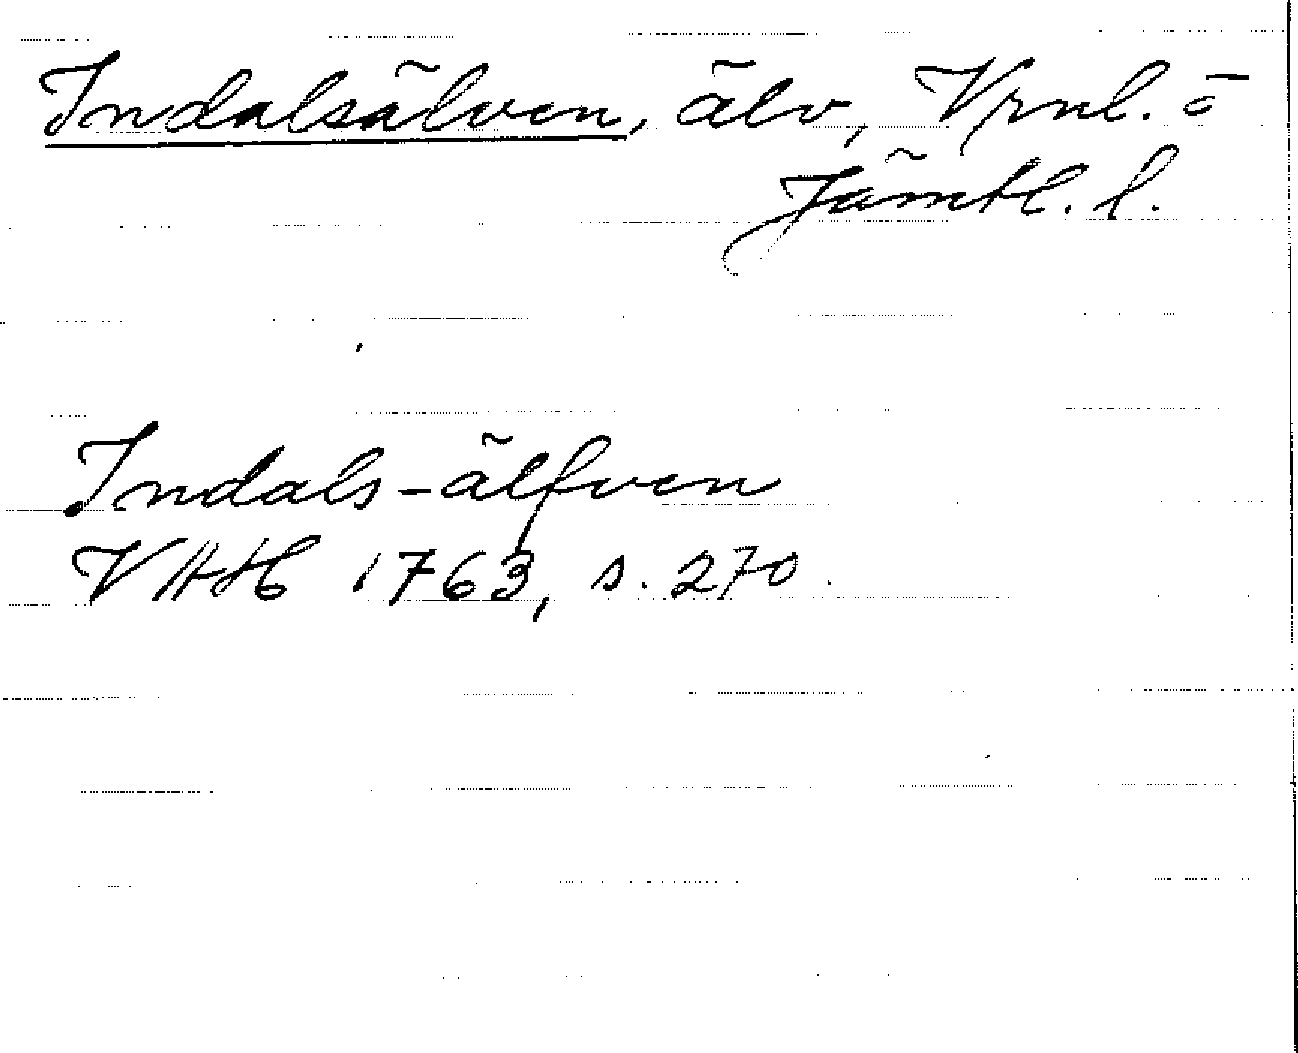 Indalsälven, älv, Vrnl. o
Jämtl. l.
Indals-älfven
VAH 1763, s. 270.